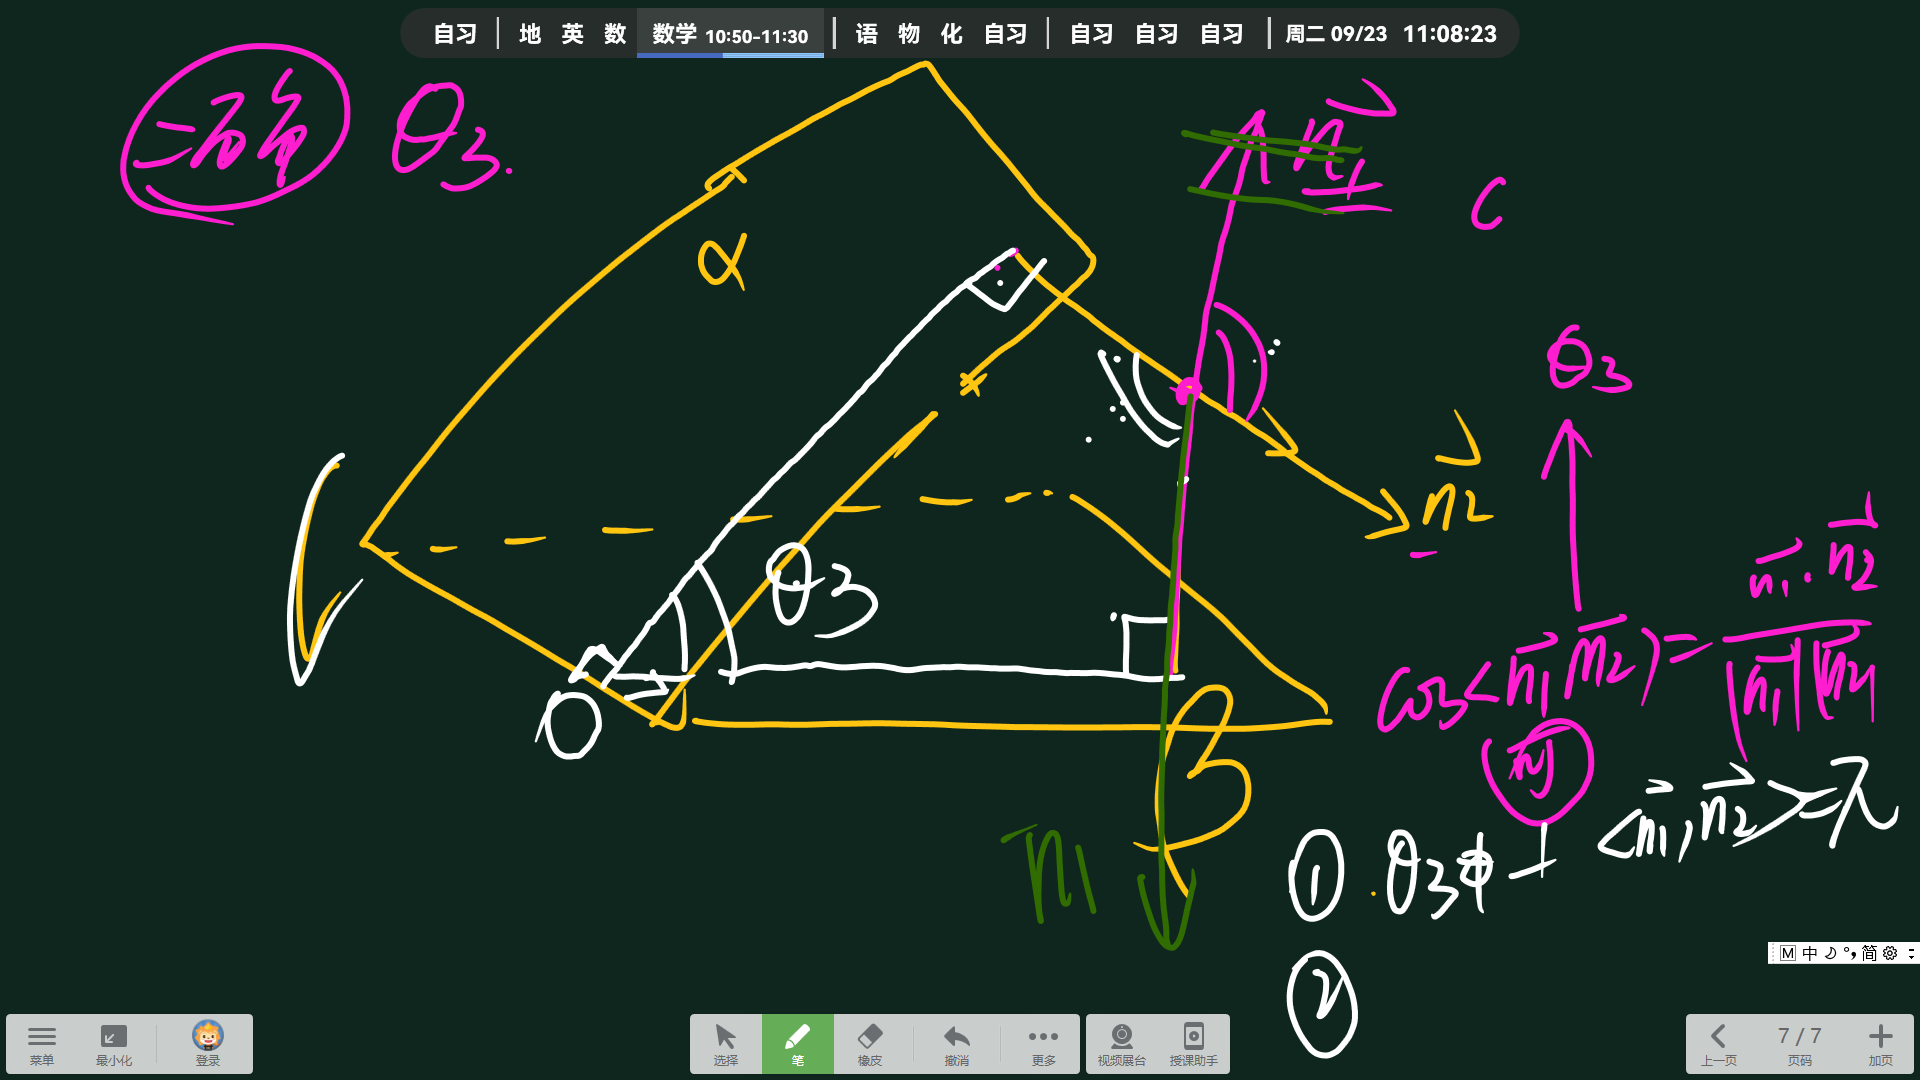 自习 | 地 英 数 数学 10:50-11:30 | 语 物 化 自习 | 自习 自习 自习 | 周二 09/23 11:08:23
二面角 θ3.
n1
C
α
θ3
n2
θ3
cos<n1 n2>= n1·n2 / |n1||n2|
O
β
n1
<n1, n2>=π
① θ3中
②
M 中 简
菜单 最小化 登录
选择 笔 橡皮 撤消 更多
视频展台 授课助手
7 / 7
上一页 页码 加页